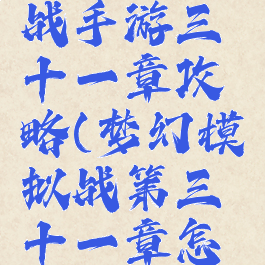 战手游三
十一章攻
略(梦幻模
拟战第三
十一章怎